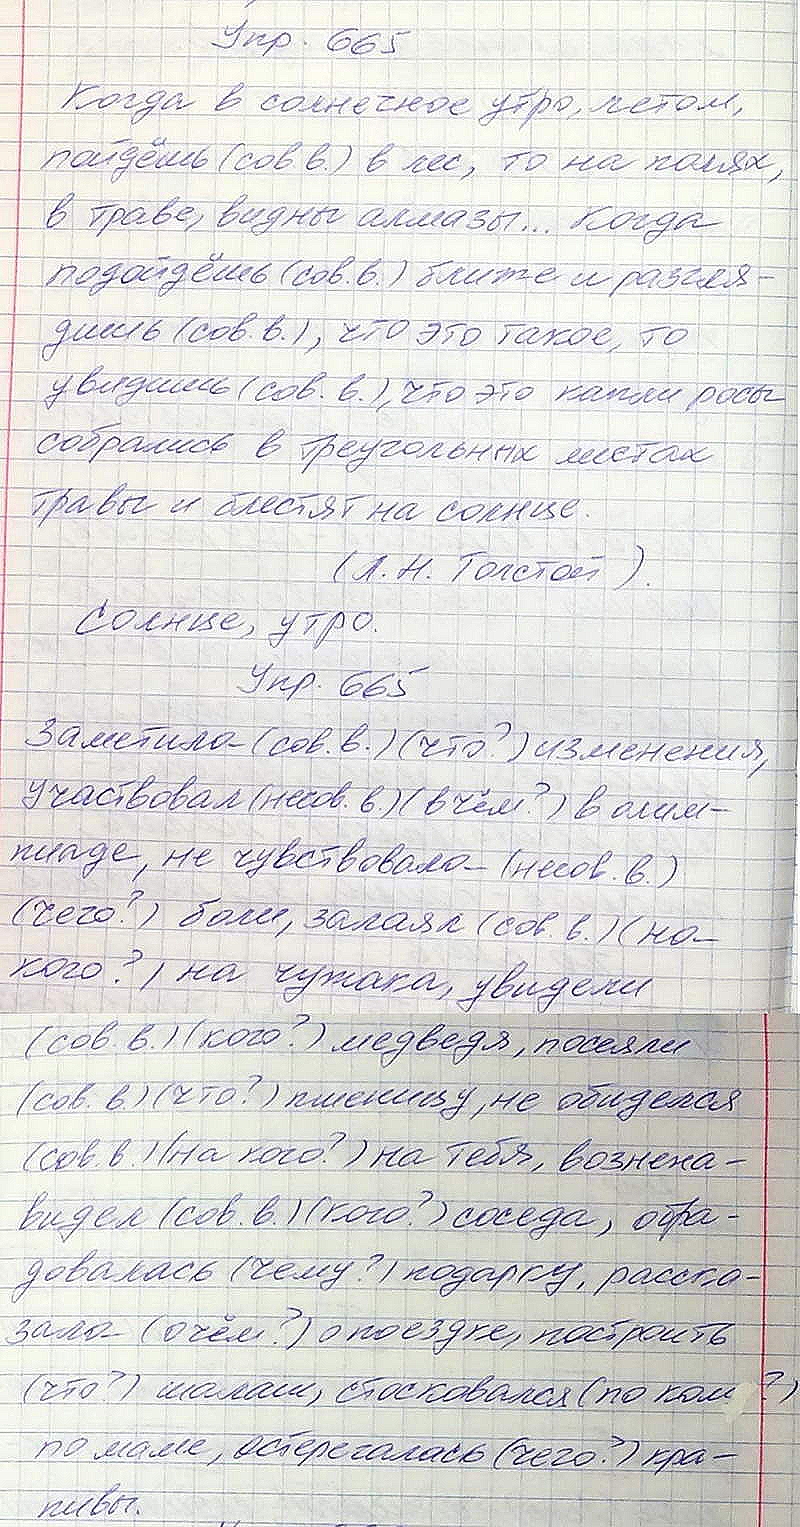 Упр. 665
Когда в солнечное утро, летом,
пойдёшь (сов в.) в лес, то на полях,
в траве, видны алмазы... Когда
подойдёшь (сов. в.) ближе и разгля-
дишь (сов. в.), что это такое, то
увидишь (сов. в.), что это капли росы
собрались в треугольных листах
травы и блестят на солнце.
(Л. Н. Толстой).
Солнце, утро.
Упр. 665
Заметила (сов. в.) (что?) изменения,
участвовал (несов. в.) (в чём?) в олим-
пиаде, не чувствовала (несов. в.)
(чего?) боли, залаял (сов. в.) (на-
кого?) на чужака, увидели
(сов. в.) (кого?) медведя, посеяли
(сов. в.) (что?) пшеницу, не обиделся
(сов. в.) (на кого?) на тебя, вознена-
видел (сов. в.) (кого?) соседа, обра-
довалась (чему?) подарку, расска-
зала (о чём?) о поездке, построить
(что?) шалаш, стосковался (по ком?)
по маме, остерегалась (чего?) кра-
пивы.